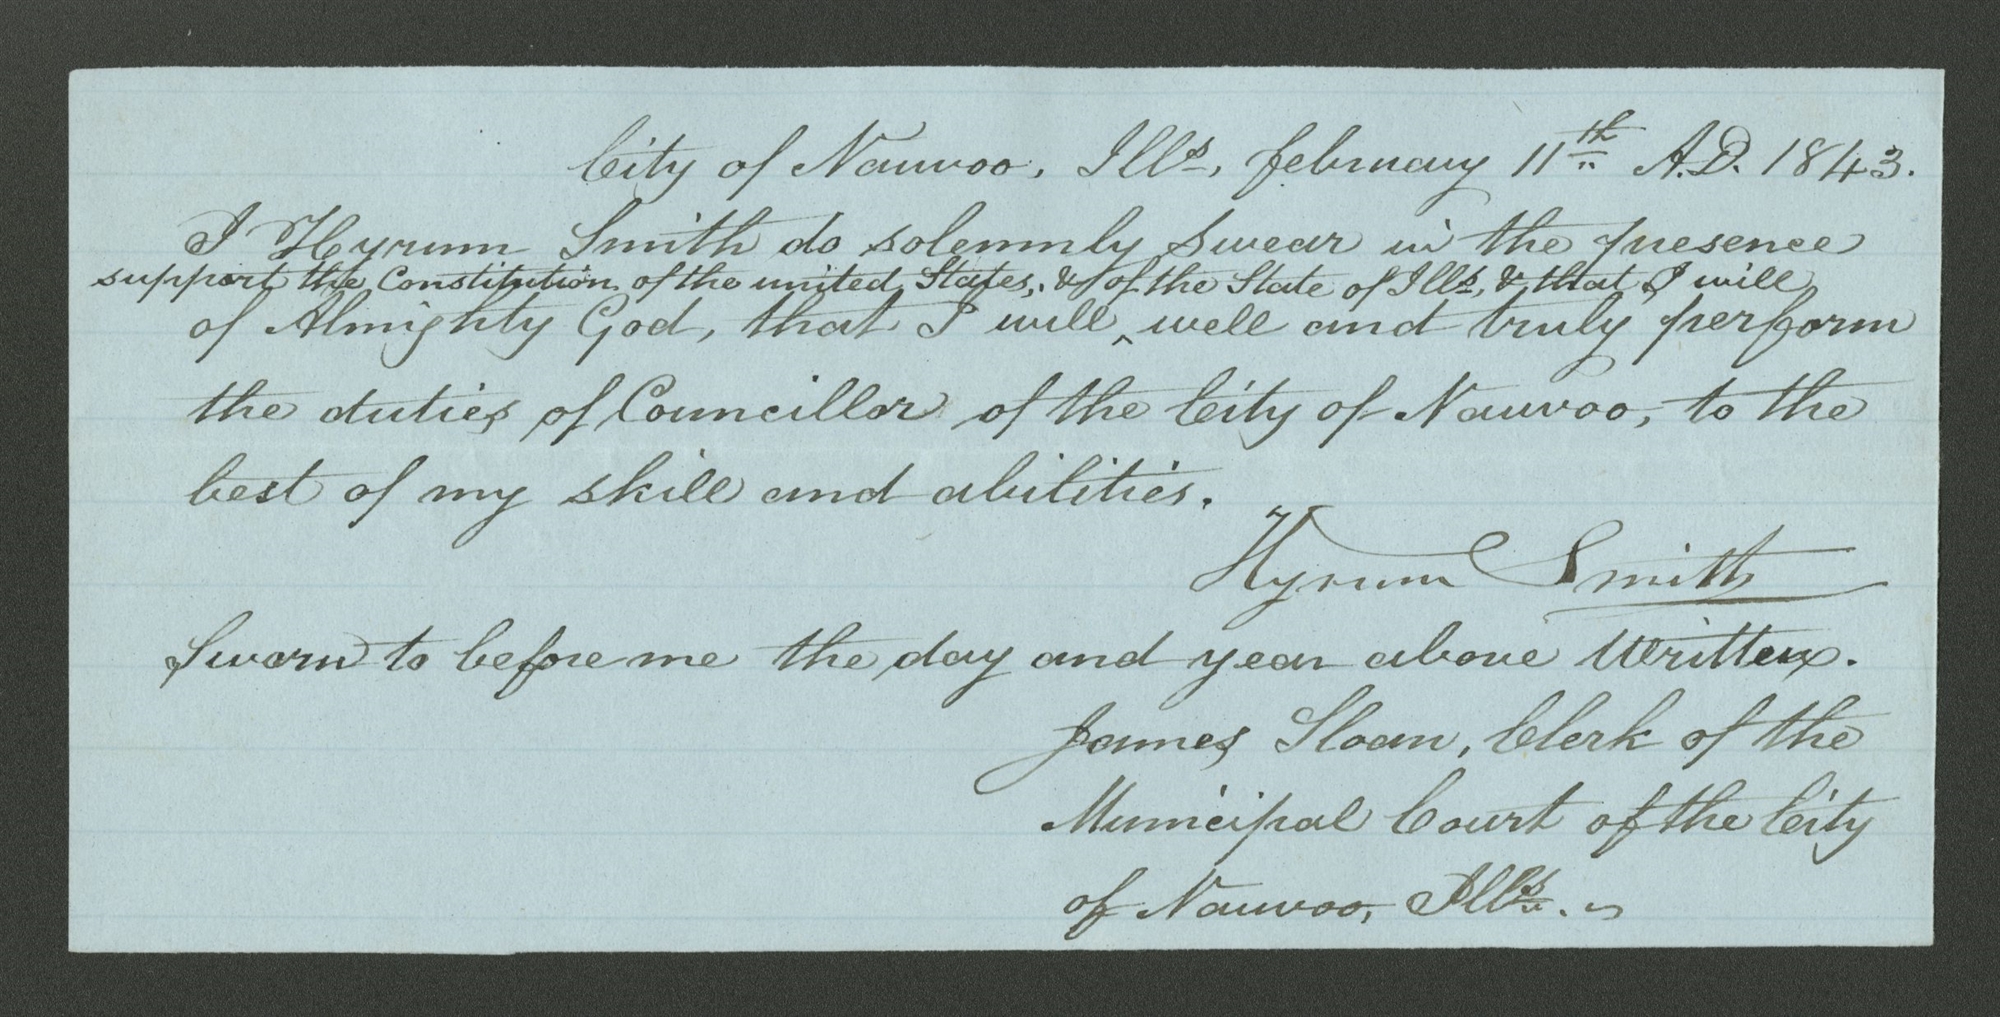 City of Nauvoo, Ills, February 11th A.D. 1843.
I Hyrum Smith do solemnly swear in the presence
support the Constitution of the united States, & of the State of Ills, & that I will
of Almighty God, that I will ^ well and truly perform
the duties of Councillor of the City of Nauvoo, to the
best of my skill and abilities.
Hyrum Smith
Sworn to before me the day and year above Written.
James Sloan, Clerk of the
Municipal Court of the City
of Nauvoo, Ills.